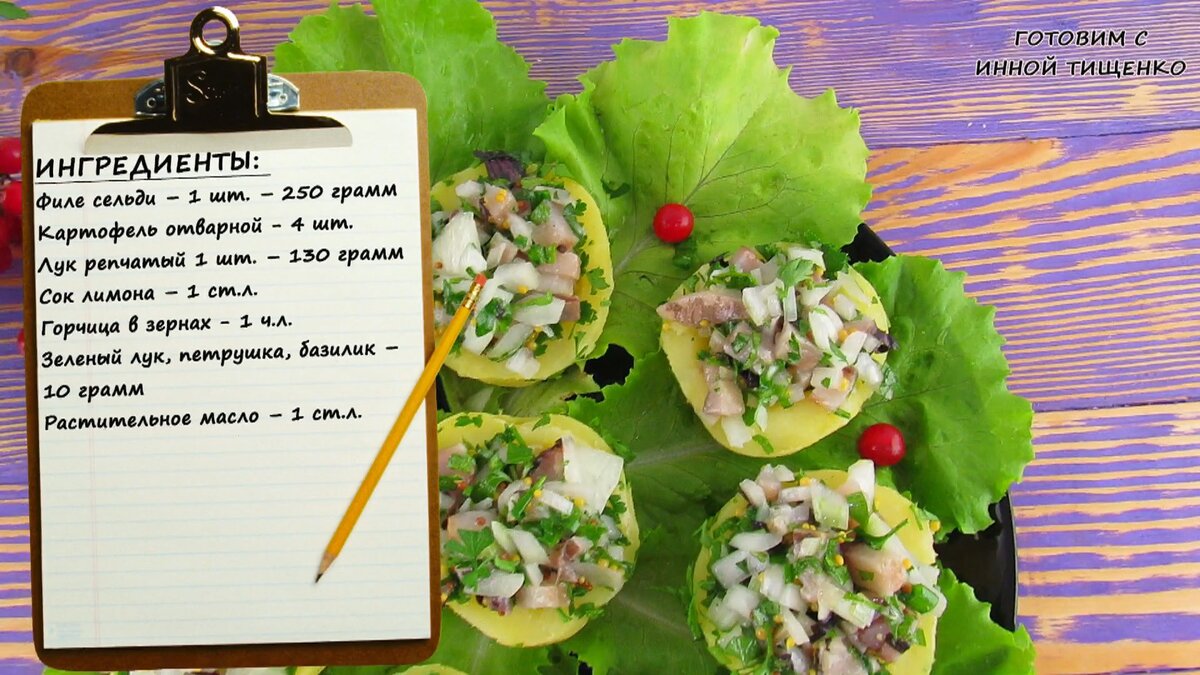 ГОТОВИМ С
ИННОЙ ТИЩЕНКО
ИНГРЕДИЕНТЫ:
Филе сельди – 1 шт. – 250 грамм
Картофель отварной - 4 шт.
Лук репчатый 1 шт. – 130 грамм
Сок лимона – 1 ст.л.
Горчица в зернах - 1 ч.л.
Зеленый лук, петрушка, базилик –
10 грамм
Растительное масло – 1 ст.л.